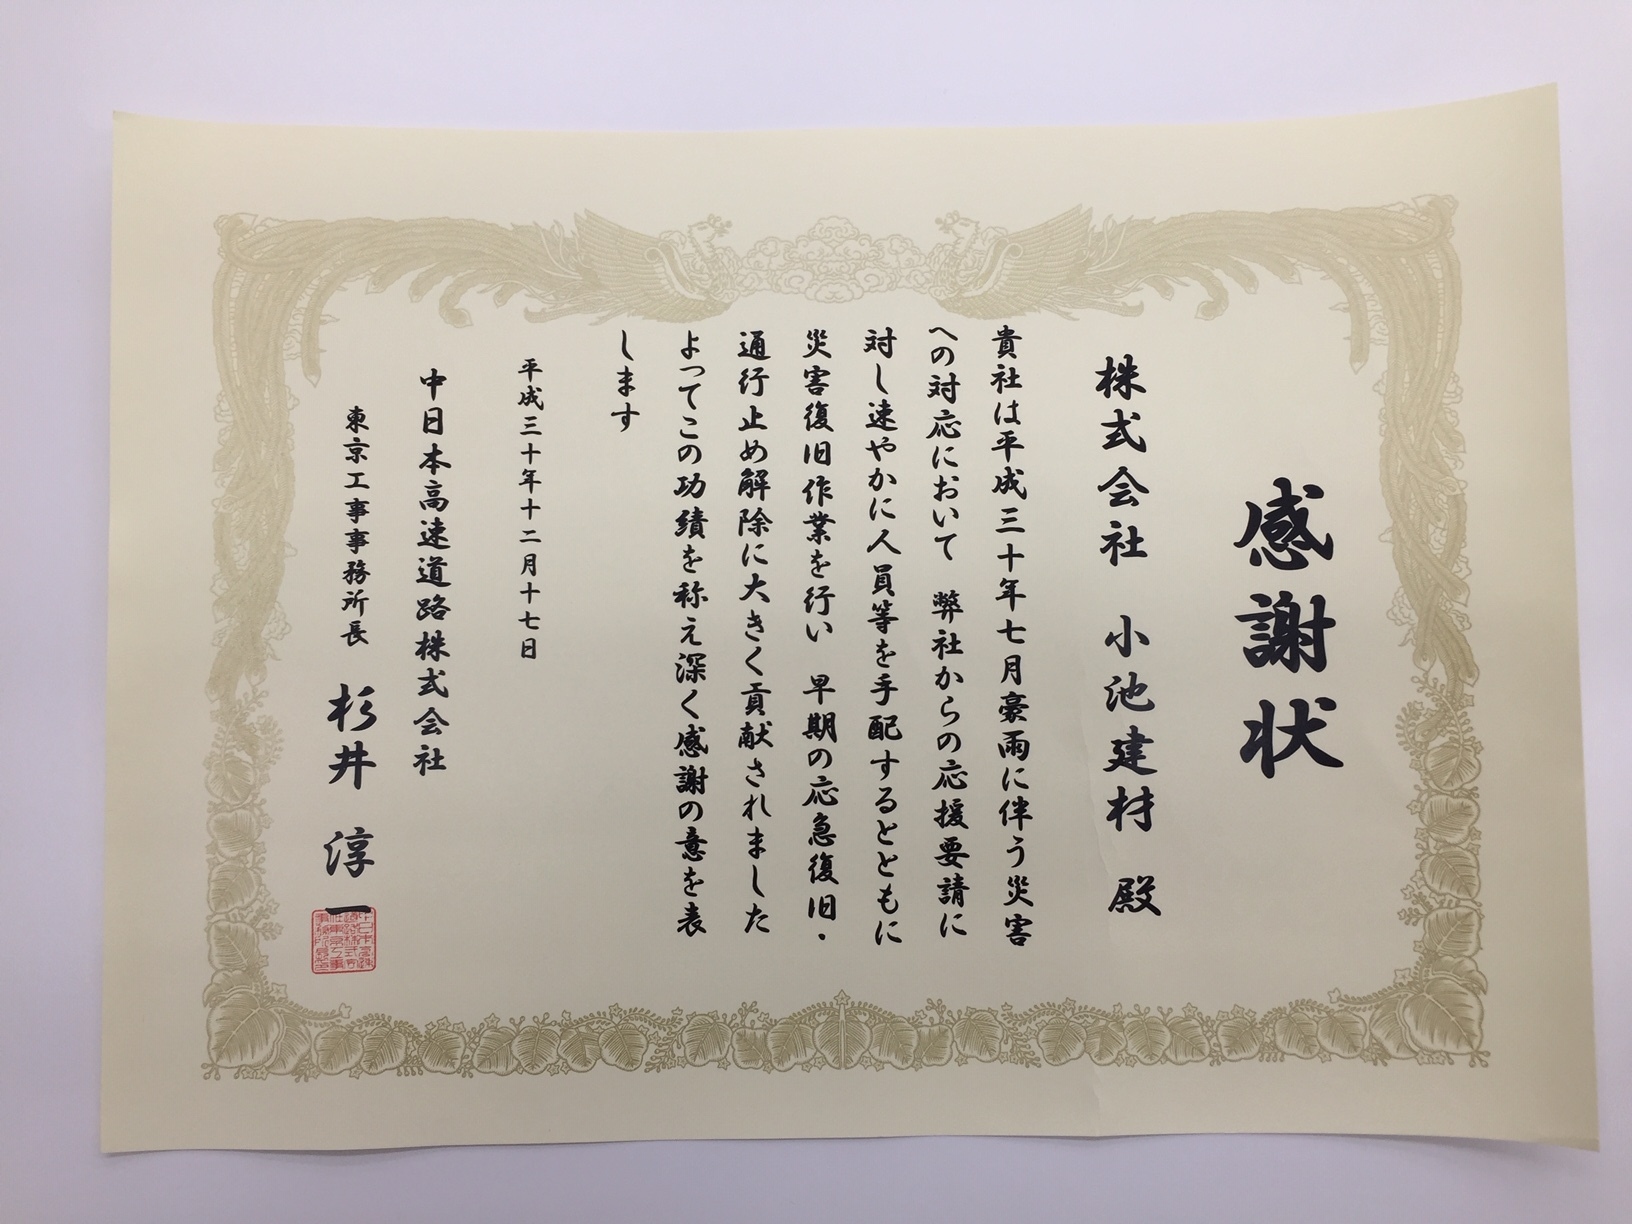 感謝状
株式会社　小池建材　殿
貴社は平成三十年七月豪雨に伴う災害
への対応において　弊社からの応援要請に
対し速やかに人員等を手配するとともに
災害復旧作業を行い　早期の応急復旧・
通行止め解除に大きく貢献されました
よってこの功績を称え深く感謝の意を表
します
平成三十年十二月十七日
中日本高速道路株式会社
東京工事事務所長　杉井　淳一